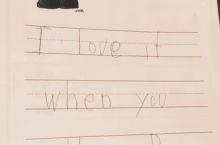 I love it
when you